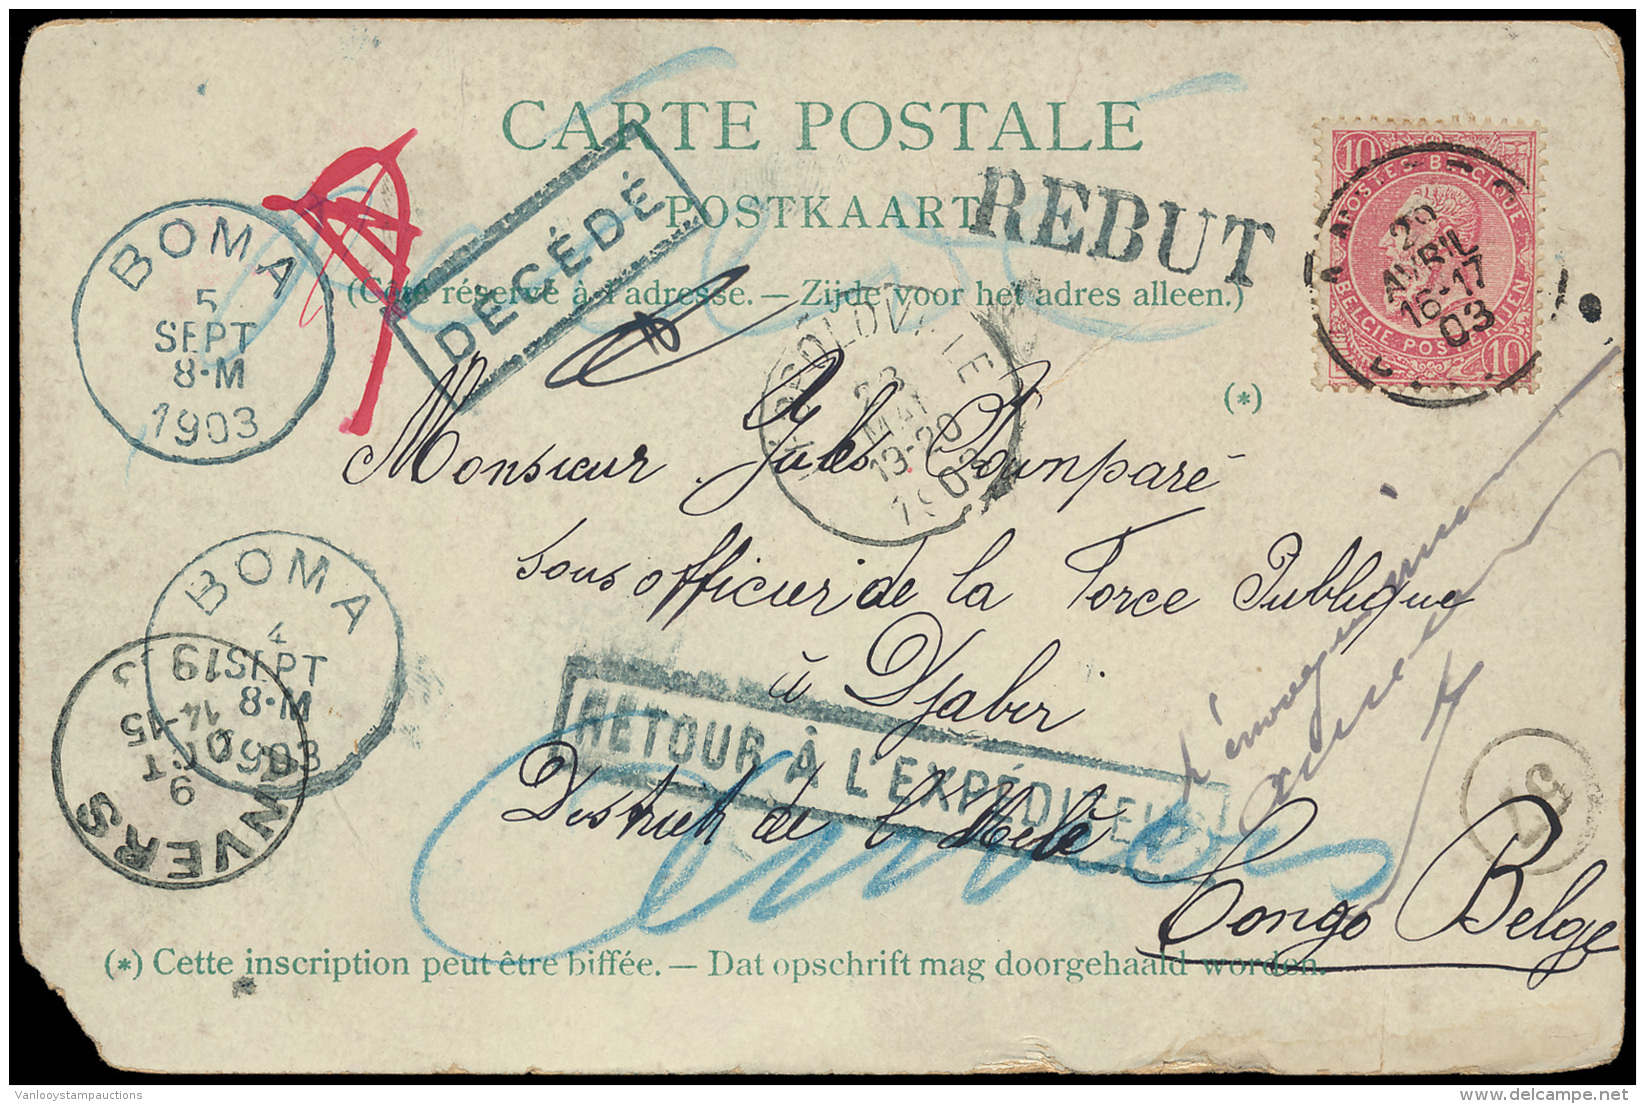 CARTE POSTALE
POSTKAART
(Côté réservé à l'adresse. — Zijde voor het adres alleen.)
DÉCÉDÉ
REBUT
10 POSTES BELGIQUE 10
BELGIE POSTERIJEN
20
AVRIL
16-17
03
BOMA
5
SEPT
8-M
1903
LÉOPOLDVILLE
23
MAI
13-20
1903
(*)
Monsieur Jules
sous officier de la Force Publique
à Djabir
District de l'Uélé
Congo Belge
BOMA
4
SEPT
8-M
1903
ANVERS
9
OCT
14-15
19
RETOUR À L'EXPÉDITEUR
37
(*) Cette inscription peut être biffée. — Dat opschrift mag doorgehaald worden.
Vanlooystampauctions
delcampe.net